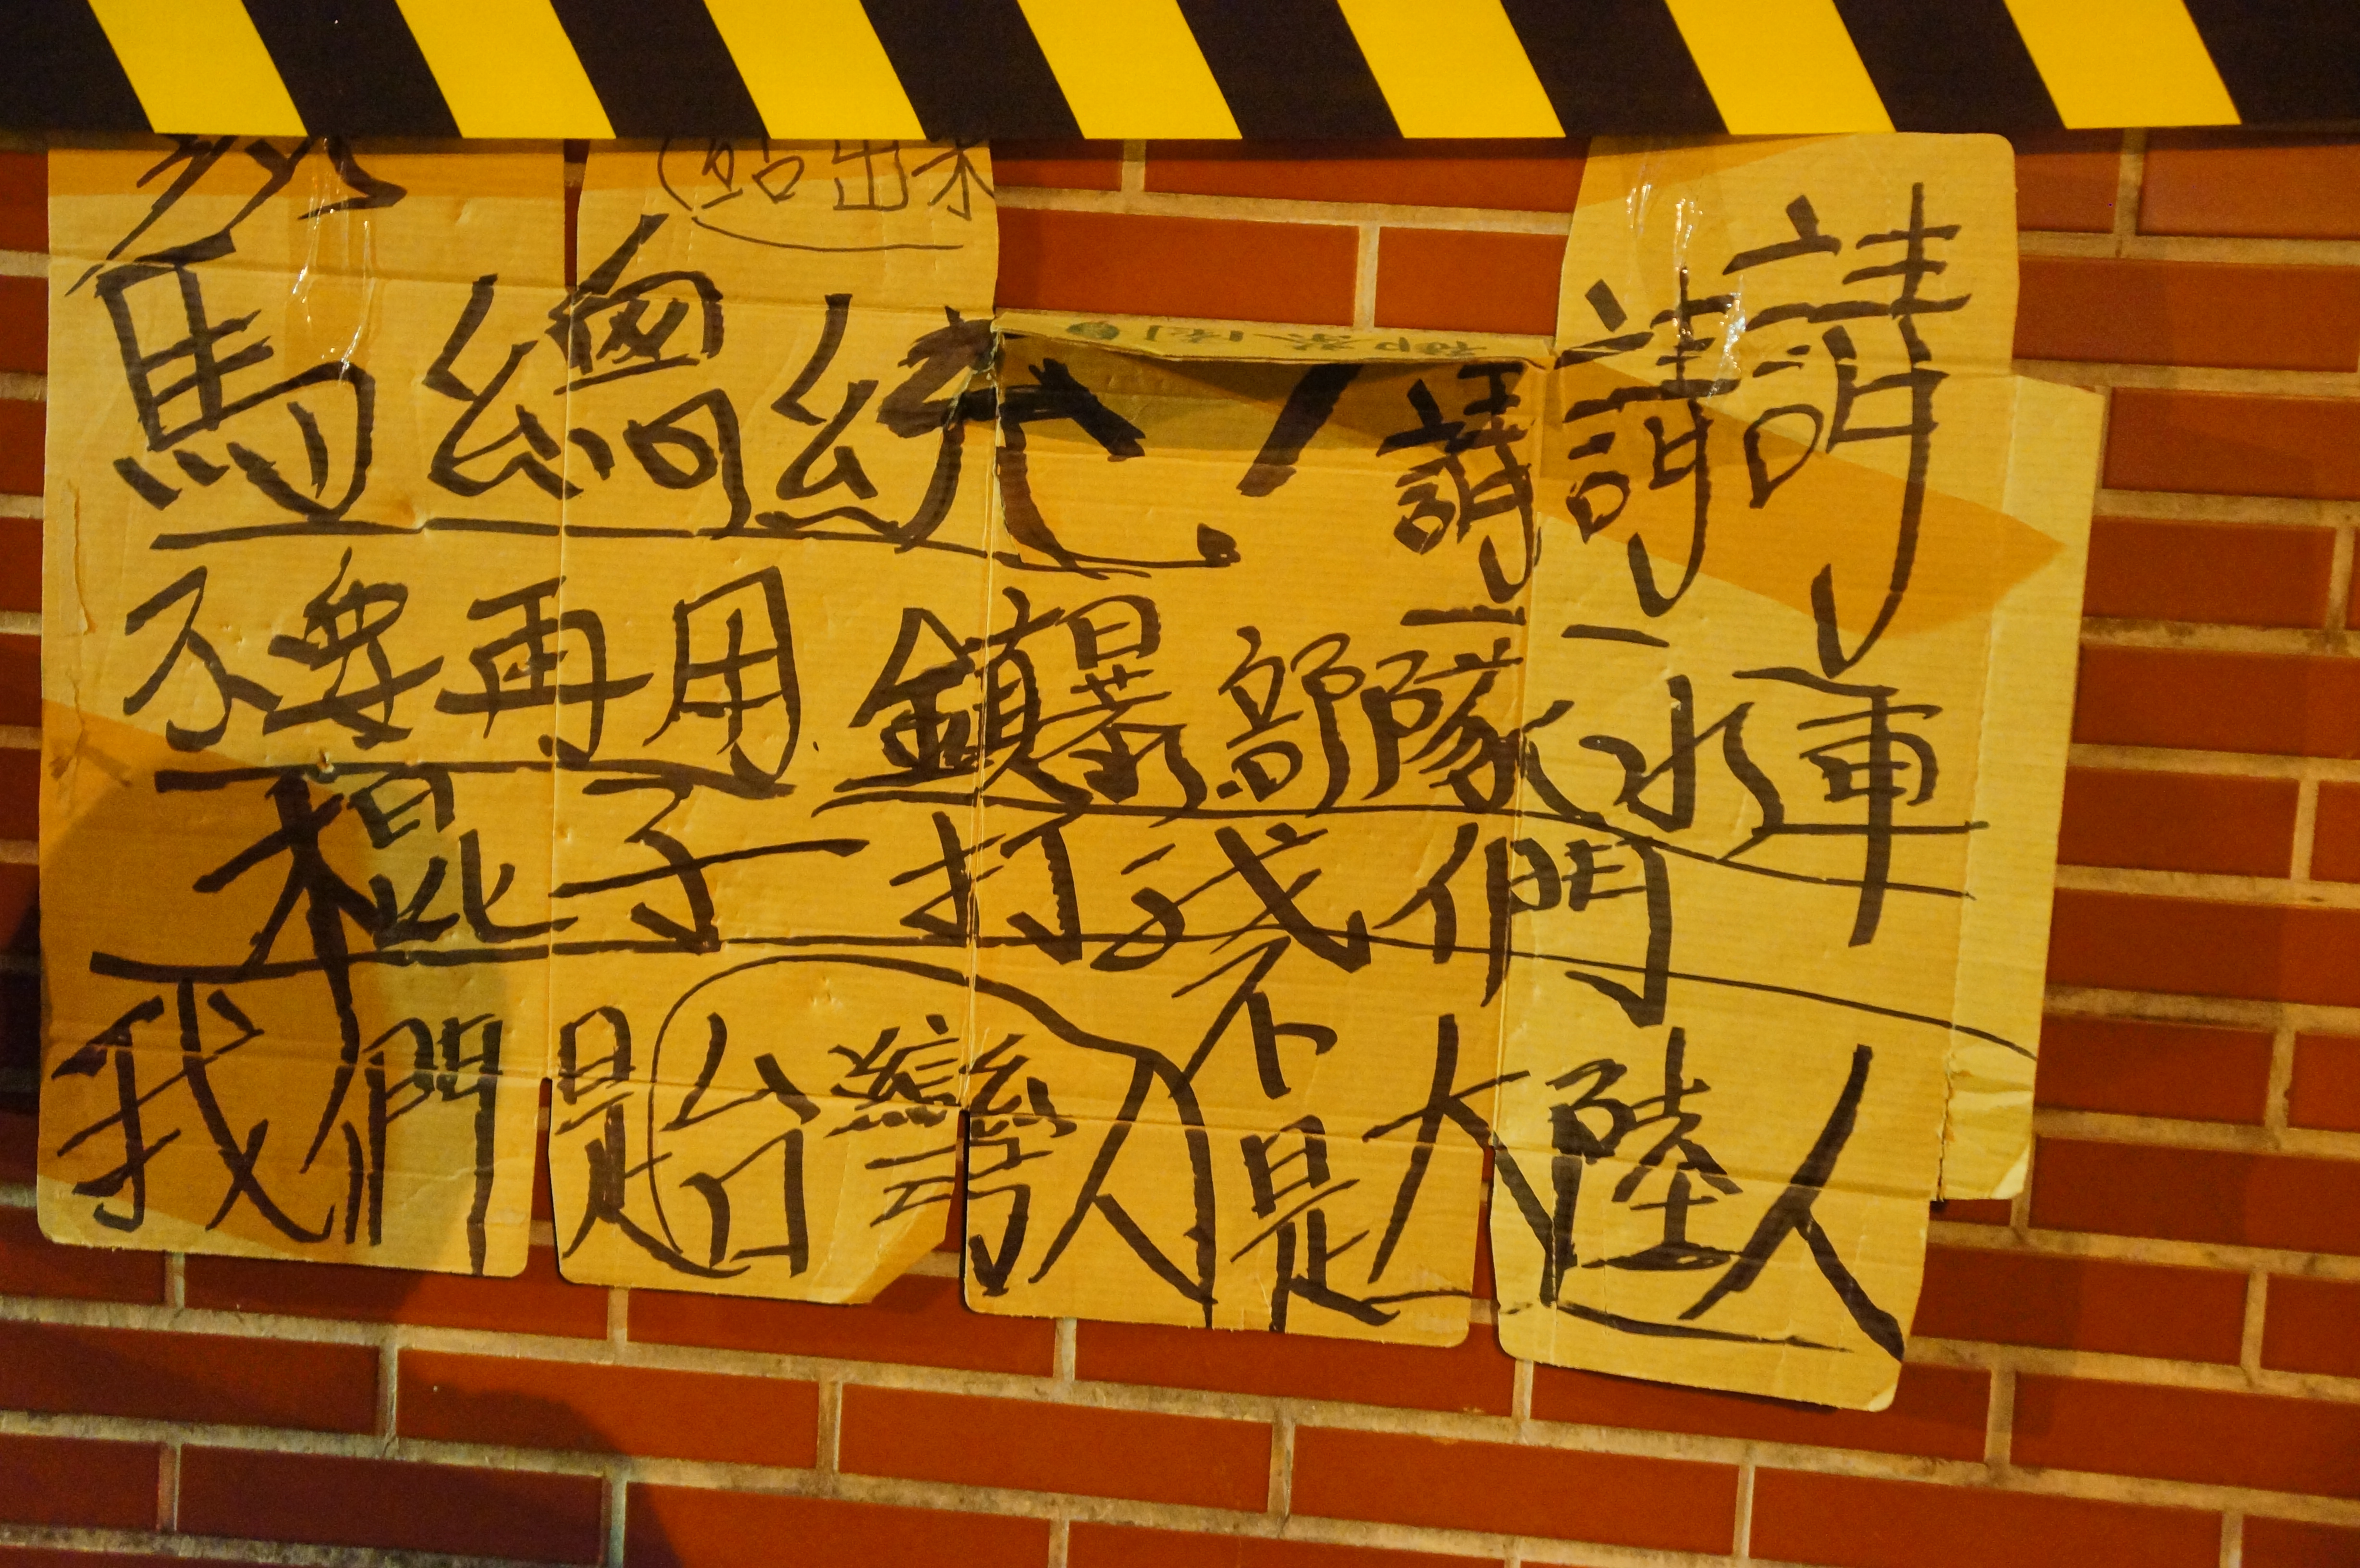 站出來
馬總統！請請請
不要再用鎮暴部隊水車
棍子打我們
我們是台灣人不是大陸人